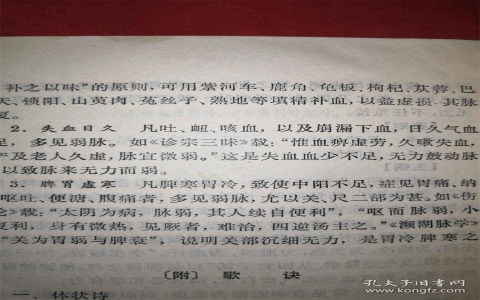 补之以味”的原则，可用紫河车、鹿角、龟板、枸杞、苁蓉、巴
天、锁阳、山萸肉、菟丝子、熟地等填精补血，以益虚损，其脉
复。
2．失血日久　凡吐、衄、咳血，以及崩漏下血，日久气血
足，多见弱脉。如《诊宗三昧》载：“惟血痹虚劳，久嗽失血，
及老人久虚，脉宜微弱。”这是失血血少不足，无力鼓动脉
以致脉来无力而弱。
3．脾胃虚寒　凡脾寒胃冷，致使中阳不足，症见胃痛、纳
呕吐、便溏、腹痛者，多见弱脉，尤以关、尺二部为甚。如《伤
论》载：“太阴为病，脉弱，其人续自便利”，“呕而脉弱，小
复利，身有微热，见厥者，难治，四逆汤主之。”《濒湖脉学》
“关为胃弱与脾衰”，说明关部沉细无力，是胃冷脾寒之
〔附〕歌　诀
一、体状诗
孔夫子旧书网
www.kongfz.com